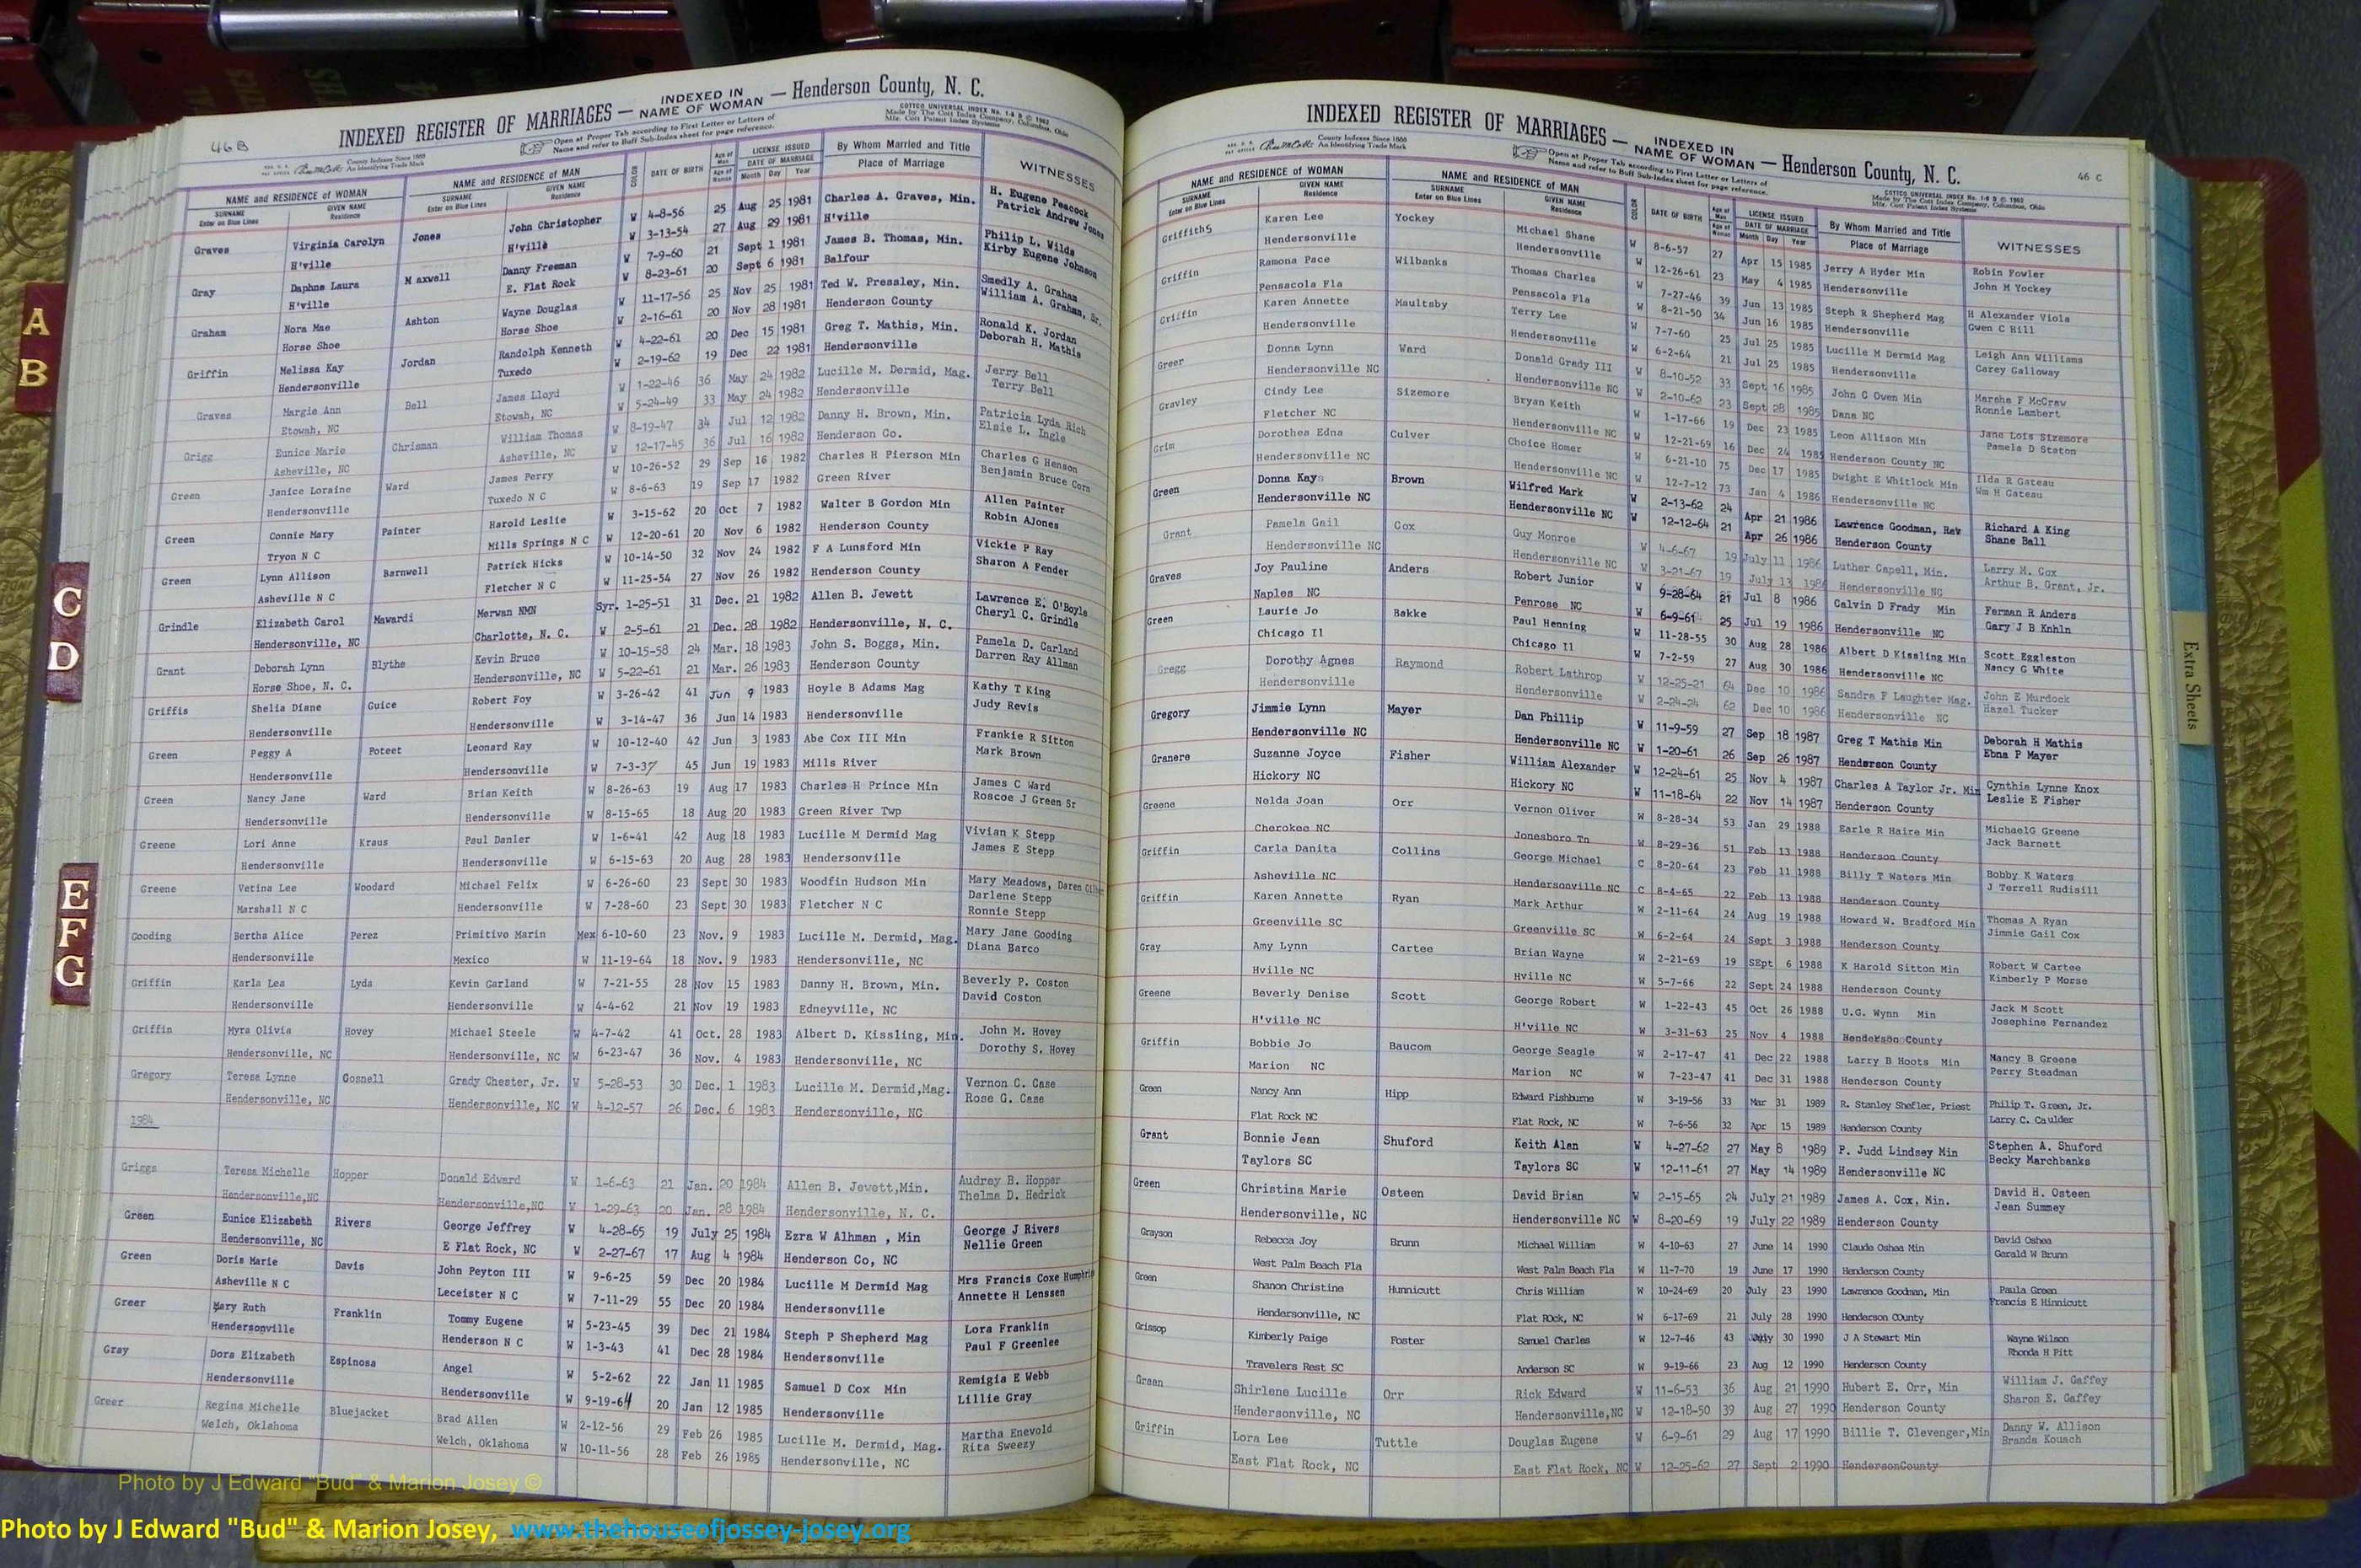 46 B
INDEXED REGISTER OF MARRIAGES — INDEXED IN NAME OF WOMAN — Henderson County, N. C.
COTTCO UNIVERSAL INDEX No. 1-4 B © 1962
Made by The Cott Index Company, Columbus, Ohio
Mfg. Cott Patent Index Systems
County Indexes Since 1888
An Identifying Trade Mark
Open at Proper Tab according to First Letter or Letters of
Name and refer to Buff Sub-Index sheet for page reference.
NAME and RESIDENCE OF WOMAN NAME and RESIDENCE OF MAN COLOR DATE OF BIRTH Age of Man Age of Woman LICENSE ISSUED DATE OF MARRIAGE By Whom Married and Title WITNESSES
SURNAME Enter on Blue Lines GIVEN NAME Residence SURNAME Enter on Blue Lines GIVEN NAME Residence Month Day Year Place of Marriage
Graves Virginia Carolyn Jones John Christopher W 4-8-56 25 Aug 25 1981 Charles A. Graves, Min. H. Eugene Peacock
H'ville H'ville W 3-13-54 27 Aug 29 1981 H'ville Patrick Andrew Jones
Gray Daphne Laura Maxwell Danny Freeman W 7-9-60 21 Sept 1 1981 James B. Thomas, Min. Philip L. Wilds
H'ville E. Flat Rock W 8-23-61 20 Sept 6 1981 Balfour Kirby Eugene Johnson
Graham Nora Mae Ashton Wayne Douglas W 11-17-56 25 Nov 25 1981 Ted W. Pressley, Min. Smedly A. Graham
Horse Shoe Horse Shoe W 2-16-61 20 Nov 28 1981 Henderson County William A. Graham, Sr.
Griffin Melissa Kay Jordan Randolph Kenneth W 4-22-61 20 Dec 15 1981 Greg T. Mathis, Min. Ronald K. Jordan
Hendersonville Tuxedo W 2-19-62 19 Dec 22 1981 Hendersonville Deborah H. Mathis
Graves Margie Ann Bell James Lloyd W 1-22-46 36 May 24 1982 Lucille M. Dermid, Mag. Jerry Bell
Etowah, NC Etowah, NC W 5-24-49 33 May 24 1982 Hendersonville Terry Bell
Grigg Eunice Marie Chrisman William Thomas W 8-19-47 34 Jul 12 1982 Danny H. Brown, Min. Patricia Lyda Rich
Asheville, NC Asheville, NC W 12-17-45 36 Jul 16 1982 Henderson Co. Elsie L. Ingle
Green Janice Loraine Ward James Perry W 10-26-52 29 Sep 16 1982 Charles H Pierson Min Charles G Henson
Hendersonville Tuxedo N C W 8-6-63 19 Sep 17 1982 Green River Benjamin Bruce Corn
Green Connie Mary Painter Harold Leslie W 3-15-62 20 Oct 7 1982 Walter B Gordon Min Allen Painter
Tryon N C Mills Springs N C W 12-20-61 20 Nov 6 1982 Henderson County Robin AJones
Green Lynn Allison Barnwell Patrick Hicks W 10-14-50 32 Nov 24 1982 F A Lunsford Min Vickie P Ray
Asheville N C Fletcher N C W 11-25-54 27 Nov 26 1982 Henderson County Sharon A Fender
Grindle Elizabeth Carol Mawardi Merwan NMN Syr. 1-25-51 31 Dec. 21 1982 Allen B. Jewett Lawrence E. O'Boyle
Hendersonville, NC Charlotte, N. C. W 2-5-61 21 Dec. 28 1982 Hendersonville, N. C. Cheryl C. Grindle
Grant Deborah Lynn Blythe Kevin Bruce W 10-15-58 24 Mar. 18 1983 John S. Boggs, Min. Pamela D. Carland
Horse Shoe, N. C. Hendersonville, NC W 5-22-61 21 Mar. 26 1983 Henderson County Darren Ray Allman
Griffis Shelia Diane Guice Robert Foy W 3-26-42 41 Jun 9 1983 Hoyle B Adams Mag Kathy T King
Hendersonville Hendersonville W 3-14-47 36 Jun 14 1983 Hendersonville Judy Revis
Green Peggy A Poteet Leonard Ray W 10-12-40 42 Jun 3 1983 Abe Cox III Min Frankie R Sitton
Hendersonville Hendersonville W 7-3-37 45 Jun 19 1983 Mills River Mark Brown
Green Nancy Jane Ward Brian Keith W 8-26-63 19 Aug 17 1983 Charles H Prince Min James C Ward
Hendersonville Hendersonville W 8-15-65 18 Aug 20 1983 Green River Twp Roscoe J Green Sr
Greene Lori Anne Kraus Paul Danler W 1-6-41 42 Aug 18 1983 Lucille M Dermid Mag Vivian K Stepp
Hendersonville Hendersonville W 6-15-63 20 Aug 28 1983 Hendersonville James E Stepp
Greene Vetina Lee Woodard Michael Felix W 6-26-60 23 Sept 30 1983 Woodfin Hudson Min Mary Meadows, Daren
Marshall N C Hendersonville W 7-28-60 23 Sept 30 1983 Fletcher N C Darlene Stepp
Ronnie Stepp
Gooding Bertha Alice Perez Primitivo Marin Mex 6-10-60 23 Nov. 9 1983 Lucille M. Dermid, Mag. Mary Jane Gooding
Hendersonville Mexico W 11-19-64 18 Nov. 9 1983 Hendersonville, NC Diana Barco
Griffin Karla Lea Lyda Kevin Garland W 7-21-55 28 Nov 15 1983 Danny H. Brown, Min. Beverly P. Coston
Hendersonville Hendersonville W 4-4-62 21 Nov 19 1983 Edneyville, NC David Coston
Griffin Myra Olivia Hovey Michael Steele W 4-7-42 41 Oct. 28 1983 Albert D. Kissling, Min. John M. Hovey
Hendersonville, NC Hendersonville, NC W 6-23-47 36 Nov. 4 1983 Hendersonville, NC Dorothy S. Hovey
Gregory Teresa Lynne Gosnell Grady Chester, Jr. W 5-28-53 30 Dec. 1 1983 Lucille M. Dermid,Mag. Vernon C. Case
Hendersonville, NC Hendersonville, NC W 4-12-57 26 Dec. 6 1983 Hendersonville, NC Rose G. Case
1984
Griggs Teresa Michelle Hopper Donald Edward W 1-6-63 21 Jan. 20 1984 Allen B. Jewett,Min. Audrey B. Hopper
Hendersonville,NC Hendersonville,NC W 1-29-63 20 Jan. 28 1984 Hendersonville, N. C. Thelma D. Hedrick
Green Eunice Elizabeth Rivers George Jeffrey W 4-28-65 19 July 25 1984 Ezra W Alhman , Min George J Rivers
Hendersonville, NC E Flat Rock, NC W 2-27-67 17 Aug 4 1984 Henderson Co, NC Nellie Green
Green Doris Marie Davis John Peyton III W 9-6-25 59 Dec 20 1984 Lucille M Dermid Mag Mrs Francis Coxe
Asheville N C Leceister N C W 7-11-29 55 Dec 20 1984 Hendersonville Annette H Lenssen
Greer Mary Ruth Franklin Tommy Eugene W 5-23-45 39 Dec 21 1984 Steph P Shepherd Mag Lora Franklin
Hendersonville Henderson N C W 1-3-43 41 Dec 28 1984 Hendersonville Paul F Greenlee
Gray Dora Elizabeth Espinosa Angel W 5-2-62 22 Jan 11 1985 Samuel D Cox Min Remigia E Webb
Hendersonville Hendersonville W 9-19-64 20 Jan 12 1985 Hendersonville Lillie Gray
Greer Regina Michelle Bluejacket Brad Allen W 2-12-56 29 Feb 26 1985 Lucille M. Dermid, Mag. Martha Enevold
Welch, Oklahoma Welch, Oklahoma W 10-11-56 28 Feb 26 1985 Hendersonville, NC Rita Sweezy
INDEXED REGISTER OF MARRIAGES — INDEXED IN NAME OF WOMAN — Henderson County, N. C.
46 C
County Indexes Since 1888
An Identifying Trade Mark
Open at Proper Tab according to First Letter or Letters of
Name and refer to Buff Sub-Index sheet for page reference.
COTTCO UNIVERSAL INDEX No. 1-4 B © 1962
Made by The Cott Index Company, Columbus, Ohio
Mfg. Cott Patent Index Systems
NAME and RESIDENCE OF WOMAN NAME and RESIDENCE OF MAN COLOR DATE OF BIRTH Age of Man Age of Woman LICENSE ISSUED DATE OF MARRIAGE By Whom Married and Title WITNESSES
SURNAME Enter on Blue Lines GIVEN NAME Residence SURNAME Enter on Blue Lines GIVEN NAME Residence Month Day Year Place of Marriage
Griffiths Karen Lee Yockey Michael Shane W 8-6-57 27 Apr 15 1985 Jerry A Hyder Min Robin Fowler
Hendersonville Hendersonville W 12-26-61 23 May 4 1985 Hendersonville John M Yockey
Griffin Ramona Pace Wilbanks Thomas Charles W 7-27-46 39 Jun 13 1985 Steph R Shepherd Mag H Alexander Viola
Pensacola Fla Pensacola Fla W 8-21-50 34 Jun 16 1985 Hendersonville Gwen C Hill
Griffin Karen Annette Maultsby Terry Lee W 7-7-60 25 Jul 25 1985 Lucille M Dermid Mag Leigh Ann Williams
Hendersonville Hendersonville W 6-2-64 21 Jul 25 1985 Hendersonville Carey Galloway
Greer Donna Lynn Ward Donald Grady III W 8-10-52 33 Sept 16 1985 John C Owen Min Marsha F McCraw
Hendersonville NC Hendersonville NC W 2-10-62 23 Sept 28 1985 Dana NC Ronnie Lambert
Gravley Cindy Lee Sizemore Bryan Keith W 1-17-66 19 Dec 23 1985 Leon Allison Min Jane Lois Sizemore
Fletcher NC Hendersonville NC W 12-21-69 16 Dec 24 1985 Henderson County NC Pamela D Staton
Grim Dorothea Edna Culver Choice Homer W 6-21-10 75 Dec 17 1985 Dwight E Whitlock Min Ilda R Gateau
Hendersonville NC Hendersonville NC W 12-7-12 73 Jan 4 1986 Hendersonville NC Wm H Gateau
Green Donna Kay Brown Wilfred Mark W 2-13-62 24 Apr 21 1986 Lawrence Goodman, Rev Richard A King
Hendersonville NC Hendersonville NC W 12-12-64 21 Apr 26 1986 Henderson County Shane Ball
Grant Pamela Gail Cox Guy Monroe W 4-6-67 19 July 11 1986 Luther Capell, Min. Larry M. Cox
Hendersonville NC Hendersonville NC W 3-21-67 19 July 13 1986 Hendersonville NC Arthur B. Grant, Jr.
Graves Joy Pauline Anders Robert Junior W 9-28-64 21 Jul 8 1986 Calvin D Frady Min Ferman R Anders
Naples NC Penrose NC W 6-9-61 25 Jul 19 1986 Hendersonville NC Gary J B Knhln
Green Laurie Jo Bakke Paul Henning W 11-28-55 30 Aug 28 1986 Albert D Kissling Min Scott Eggleston
Chicago Il Chicago Il W 7-2-59 27 Aug 30 1986 Hendersonville NC Nancy G White
Gregg Dorothy Agnes Raymond Robert Lathrop W 12-25-21 64 Dec 10 1986 Sandra F Laughter Mag. John E Murdock
Hendersonville Hendersonville W 2-24-24 62 Dec 10 1986 Hendersonville NC Hazel Tucker
Gregory Jimmie Lynn Mayer Dan Phillip W 11-9-59 27 Sep 18 1987 Greg T Mathis Min Deborah H Mathis
Hendersonville NC Hendersonville NC W 1-20-61 26 Sep 26 1987 Henderson County Ebna P Mayer
Granere Suzanne Joyce Fisher William Alexander W 12-24-61 25 Nov 4 1987 Charles A Taylor Jr. Min Cynthia Lynne Knox
Hickory NC Hickory NC W 11-18-64 22 Nov 14 1987 Henderson County Leslie E Fisher
Greene Nelda Joan Orr Vernon Oliver W 8-28-34 53 Jan 29 1988 Earle R Haire Min MichaelG Greene
Cherokee NC Jonesboro Tn W 8-29-36 51 Feb 13 1988 Henderson County Jack Barnett
Griffin Carla Danita Collins George Michael C 8-20-64 23 Feb 11 1988 Billy T Waters Min Bobby K Waters
Asheville NC Hendersonville NC C 8-4-65 22 Feb 13 1988 Henderson County J Terrell Rudisill
Griffin Karen Annette Ryan Mark Arthur W 2-11-64 24 Aug 19 1988 Howard W. Bradford Min Thomas A Ryan
Greenville SC Greenville SC W 6-2-64 24 Sept 3 1988 Henderson County Jimmie Gail Cox
Gray Amy Lynn Cartee Brian Wayne W 2-21-69 19 SEpt 6 1988 K Harold Sitton Min Robert W Cartee
Hville NC Hville NC W 5-7-66 22 Sept 24 1988 Henderson County Kimberly P Morse
Greene Beverly Denise Scott George Robert W 1-22-43 45 Oct 26 1988 U.G. Wynn Min Jack M Scott
H'ville NC H'ville NC W 3-31-63 25 Nov 4 1988 Henderson County Josephine Fernandez
Griffin Bobbie Jo Baucom George Seagle W 2-17-47 41 Dec 22 1988 Larry B Hoots Min Nancy B Greene
Marion NC Marion NC W 7-23-47 41 Dec 31 1988 Henderson County Perry Steadman
Green Nancy Ann Hipp Edward Fishburne W 3-19-56 33 Mar 31 1989 R. Stanley Shefler, Priest Philip T. Green, Jr.
Flat Rock NC Flat Rock, NC W 7-6-56 32 Apr 15 1989 Henderson County Larry C. Caulder
Grant Bonnie Jean Shuford Keith Alan W 4-27-62 27 May 8 1989 P. Judd Lindsey Min Stephen A. Shuford
Taylors SC Taylors SC W 12-11-61 27 May 14 1989 Hendersonville NC Becky Marchbanks
Green Christina Marie Osteen David Brian W 2-15-65 24 July 21 1989 James A. Cox, Min. David H. Osteen
Hendersonville, NC Hendersonville NC W 8-20-69 19 July 22 1989 Henderson County Jean Summey
Grayson Rebecca Joy Brunn Michael William W 4-10-63 27 June 14 1990 Claude Oshea Min David Oshea
West Palm Beach Fla West Palm Beach Fla W 11-7-70 19 June 17 1990 Henderson County Gerald W Brunn
Green Shanon Christine Hunnicutt Chris William W 10-24-69 20 July 23 1990 Lawrence Goodman, Min Paula Green
Hendersonville, NC Flat ROck, NC W 6-17-69 21 July 28 1990 Henderson COunty Francis E Hinnicutt
Grissop Kimberly Paige Foster Samuel Charles W 12-7-46 43 July 30 1990 J A Stewart Min Wayne Wilson
Travelers Rest SC Anderson SC W 9-19-66 23 Aug 12 1990 Henderson County Rhonda H Pitt
Green Shirlene Lucille Orr Rick Edward W 11-6-53 36 Aug 21 1990 Hubert E. Orr, Min William J. Gaffey
Hendersonville, NC Hendersonville,NC W 12-18-50 39 Aug 27 1990 Henderson County Sharon E. Gaffey
Griffin Lora Lee Tuttle Douglas Eugene W 6-9-61 29 Aug 17 1990 Billie T. Clevenger,Min Danny W. Allison
East Flat Rock, NC East Flat Rock, NC W 12-25-62 27 Sept 2 1990 HendersonCounty Branda Kouach
A
B
C
D
E
F
G
Extra Sheets
Photo by J Edward "Bud" & Marion Josey ©
Photo by J Edward "Bud" & Marion Josey, www.thehouseofjossey-josey.org